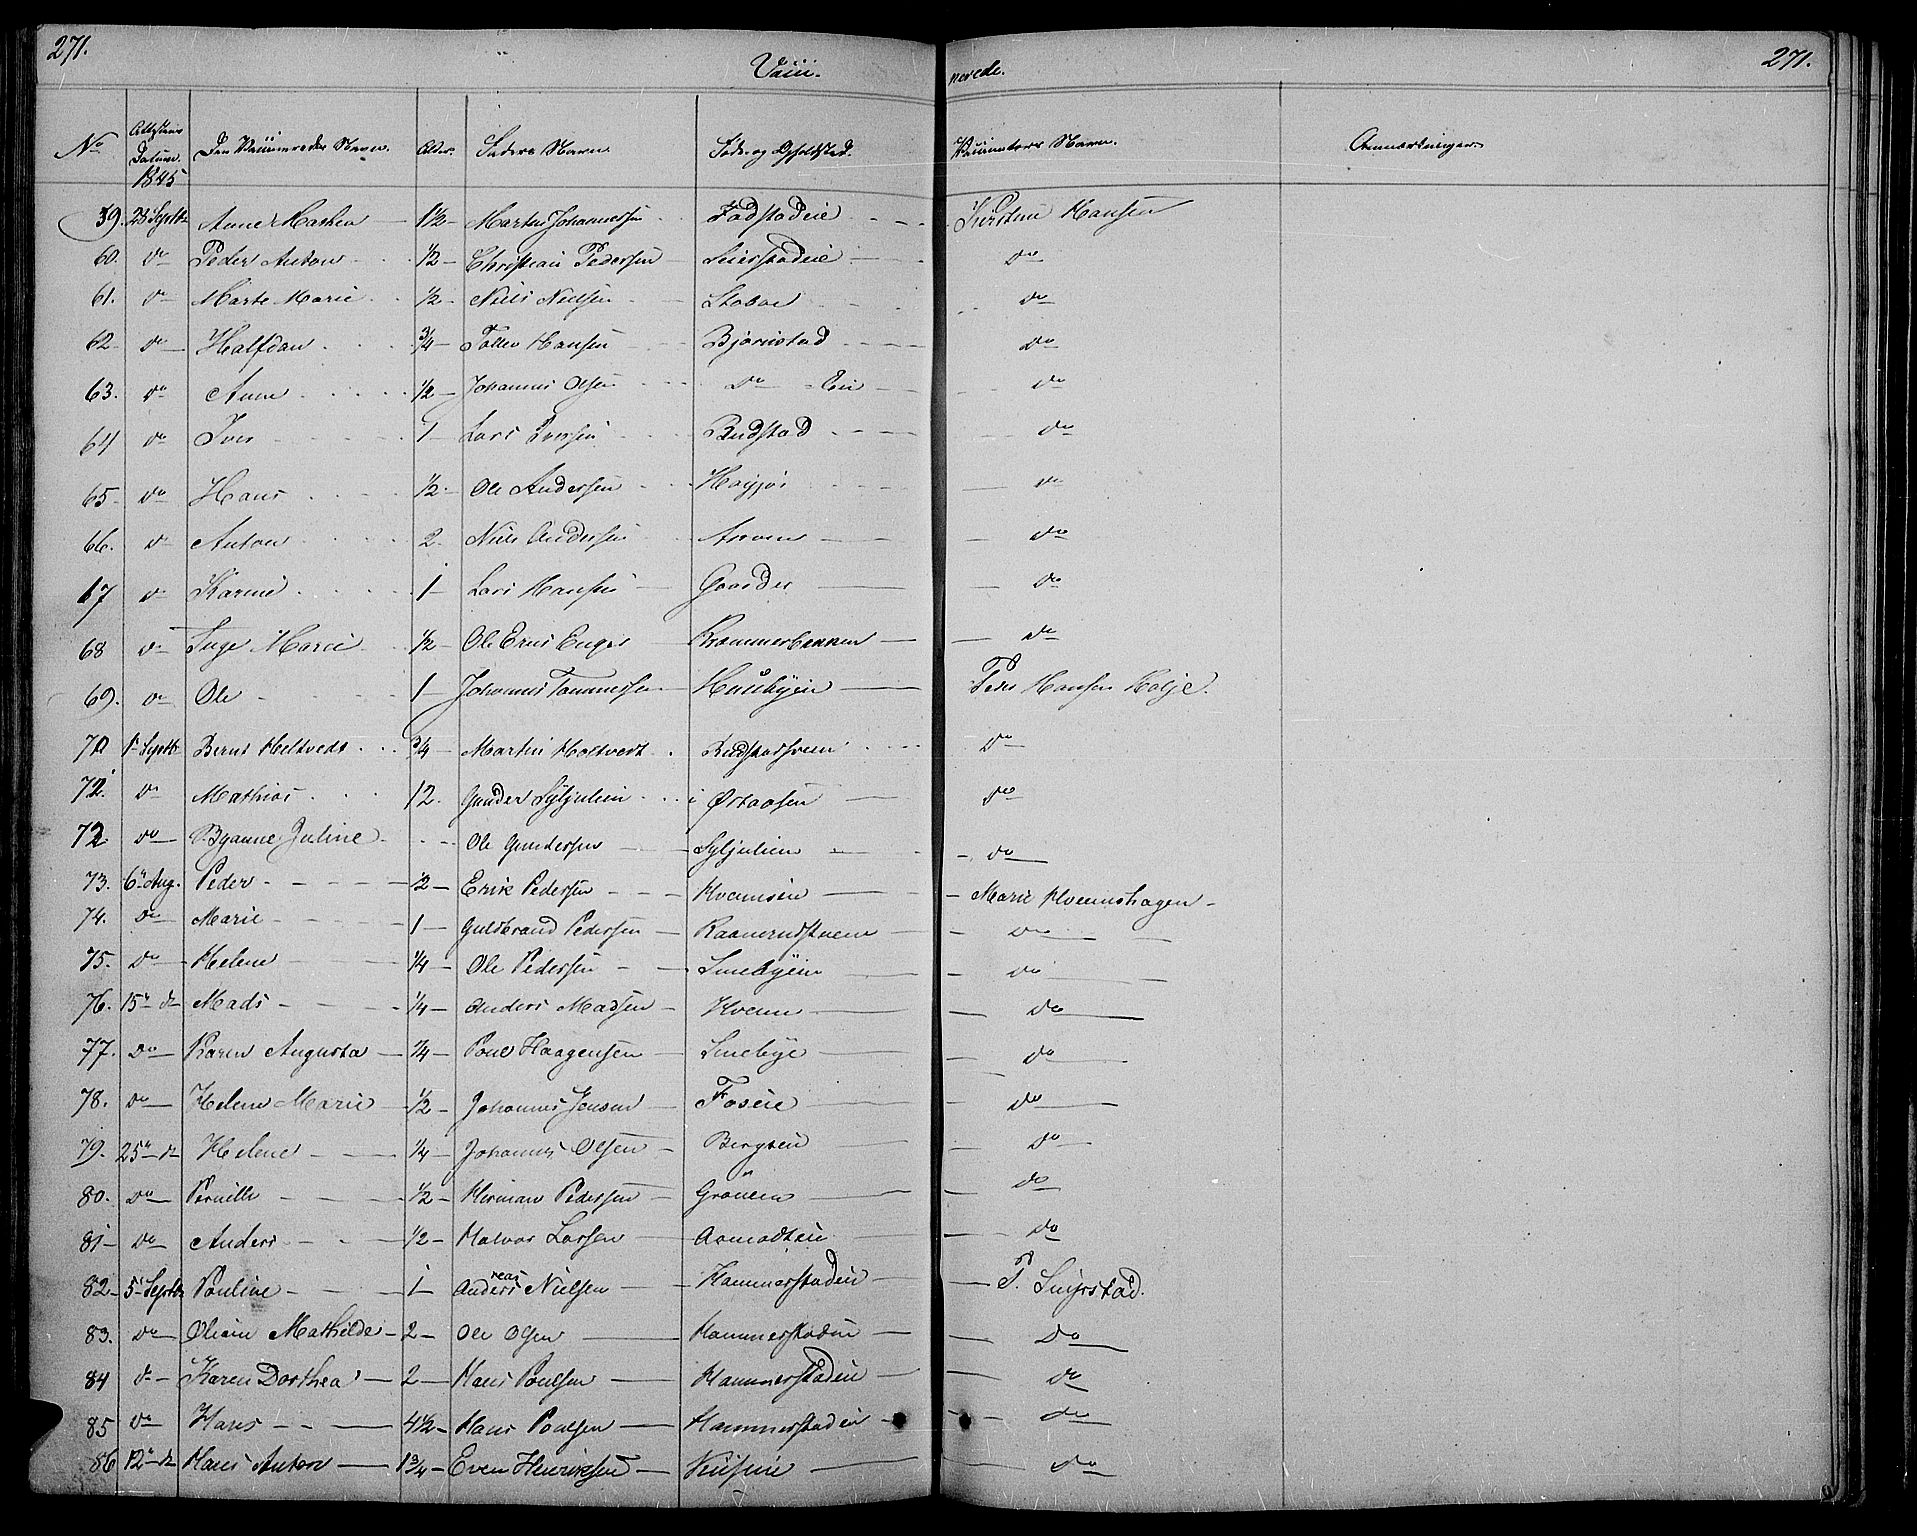 271. Vaccinerede. 271.
No Attestens Datum 1845 Den Vaccineredes Navn. Alder. Faders Navn Føde- og Opholdsted. Vaccinators Navn. Anmærkninger.
59. 28 Septbr Anne Mathea 1½ Martin Johannessen Fodstadeie Kirstine Hansen
60. do Peder Anton ½ Christian Pedersen Seierstadeie do
61. do Marte Marie ½ Niels Nielsen do
62 do Halfdan ¾ Tollev Hansen Bjørnstad do
63. do Anne ½ Johannes Olsen do Eie do
64 do Iver 1 Lars Iversen Rudstad do
65 do Hans ½ Ole Andersen do
66. do Anton 2 Niels Andersen do
67 do Karine 1 Lars Hansen Gaarder do
68 do Inge Marie ½ Ole Enger do
69. do Ole 1 Johannes Husebyeie Peder Hansen
70 1 Septbr Bernt Holtvedt ¾ Martin Holtvedt Rudstadsveen do
72. do Mathias 12. Gunder Syljulien i Østaasen do
72 do Juline Ole Gundersen Syljulien do
73. 6te Aug. Peder ½ Erik Pedersen Hvemseie Marie Hvemshagen
74. do Marie 1 Guldbrand Pedersen do
75. do Helene ¼ Ole Pedersen Smebyeie do
76. 15de do Mads ¼ Anders Madsen Hvem do
77. do Karen Augusta ¼ Poul Haagensen Smebye do
78. do Helene Marie ½ Johannes Jensen Foseie do
79. 25de do Helene ¼ Johannes Olsen Bergseie do
80. do Pernille ½ Herman Pedersen do
81 do Anders ½ Halvor Larsen Aamodteie do
82 5 Septbr Pauline 1 Andersreas Nielsen Hammerstadeie P. Seigrstad.
83. do Oliane Mathilde 2 Ole Olsen Hammerstadeie do
84 do Karen Dorthea 2 Hans Poulsen Hammerstadeie do
85 do Hans 4½ Hans Poulsen Hammerstadeie do
86 12te do Hans Anton 1¾ Even Henriksen do